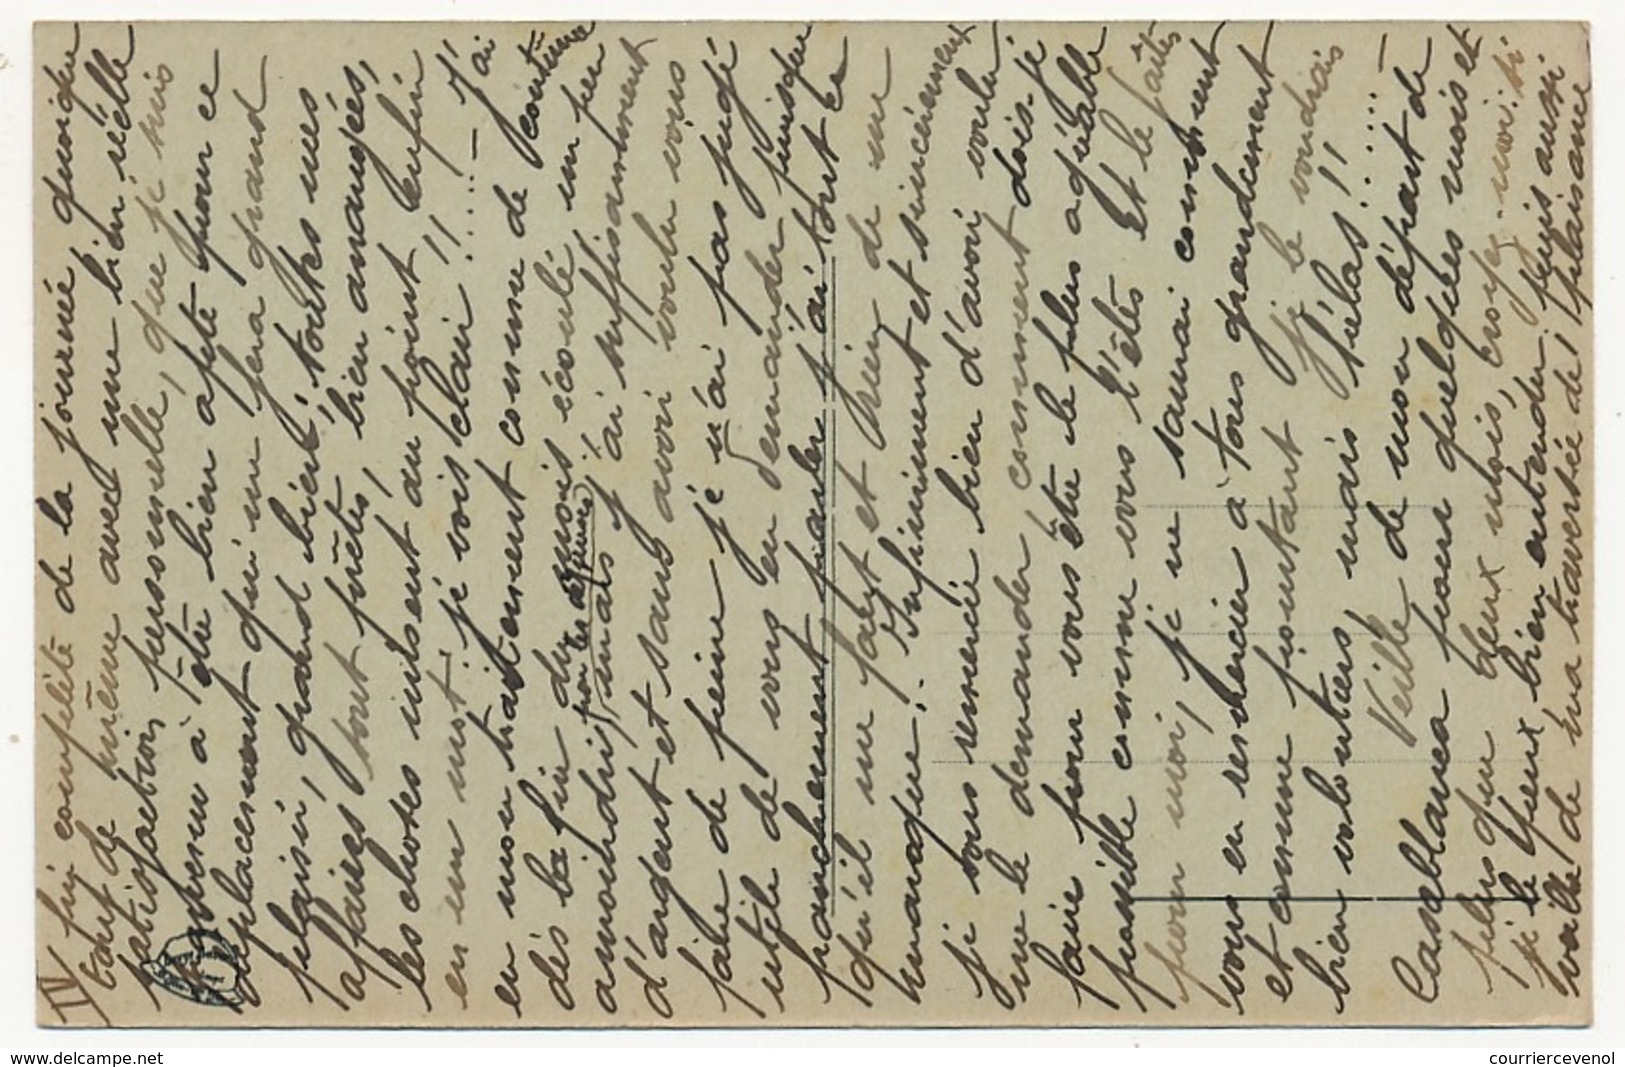 IV
fini complété de la journée quoique
tant de même avec une bien réelle
satisfaction personnelle, que je suis
parvenu à être bien apte pour ce
déplacement qui me fera grand
plaisir, grand bien! toutes mes
affaires sont prêtes, bien arrangées,
les choses mises au point!! enfin
en un mot: je vois clair!!.... — J'ai
en mon traitement comme de coutume
dès la fin du mois écoulé un peu
(pour les absences)
amoindri mais j'ai suffisamment
d'argent et sans avoir voulu vous
faire de peine je n'ai pas jugé
utile de vous en demander puisque
franchement parler j'ai tout ce
qu'il me faut et rien de me
manque. Infiniment et sincèrement
je vous remercie bien d'avoir voulu
me le demander comment dois-je
faire pour vous être le plus agréable
possible comme vous l'êtes et le faîtes
pour moi, je ne saurai comment
vous en remercier à tous grandement
et comme pourtant je le voudrais
bien volontiers mais hélas!!....
Veille de mon départ de
Casablanca pour quelques mois et
plus que deux mois, croyez-moi si
je le peux bien entendu, puis aussi
veille de ma traversée de plaisance
www.delcampe.net
courriercevenol